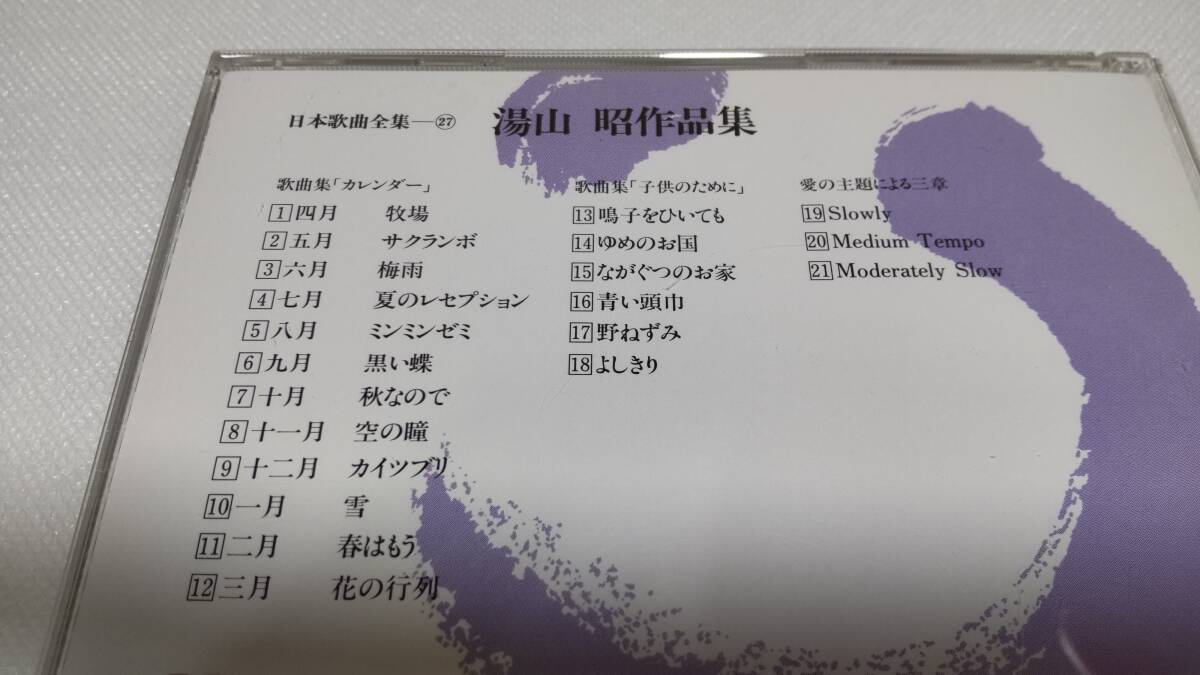 日本歌曲全集—㉗ 湯山 昭作品集
歌曲集「カレンダー」
1 四月 牧場
2 五月 サクランボ
3 六月 梅雨
4 七月 夏のレセプション
5 八月 ミンミンゼミ
6 九月 黒い蝶
7 十月 秋なので
8 十一月 空の瞳
9 十二月 カイツブリ
10 一月 雪
11 二月 春はもう
12 三月 花の行列
歌曲集「子供のために」
13 鳴子をひいても
14 ゆめのお国
15 ながぐつのお家
16 青い頭巾
17 野ねずみ
18 よしきり
愛の主題による三章
19 Slowly
20 Medium Tempo
21 Moderately Slow